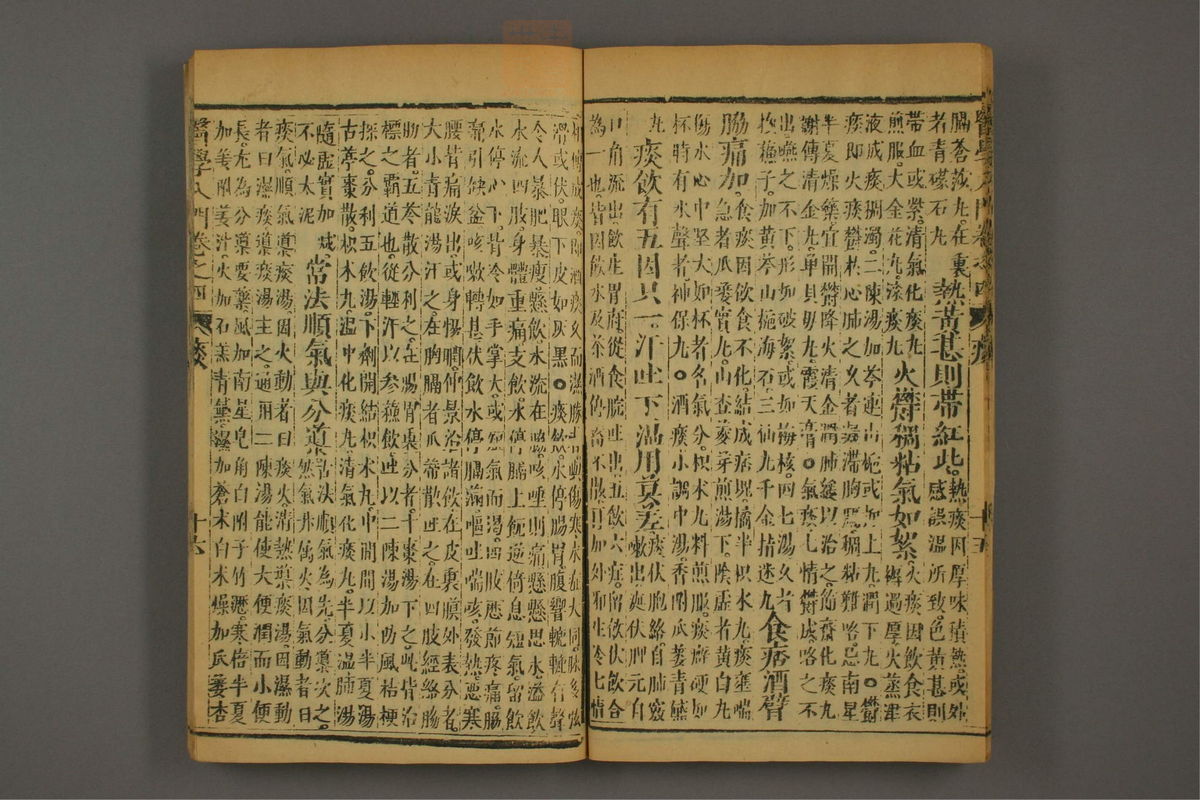 膈。蒼莎丸。在裏
者青礞石丸
熱苦甚則帶紅此。
熱痰因厚味積熱或外
感誤溫所致。色黃甚則
帶血或紫。清氣化痰丸
煎服。大金花丸。滾痰丸
火鬱稠粘氣如絮。
火痰因飲食衣
縟過厚。火蒸津
液成痰稠濁。二陳湯加芩連山梔或加上丸。潤下丸。〇鬱
痰即火痰鬱於心肺之久者。凝滯胸膈。稠粘難咯。忌南星
半夏燥藥。宜開鬱降火。清金潤肺。緩以治之。節齋化痰丸
謝傳清金丸。單貝母丸。霞天膏。〇氣痰。七情鬱成。咯之不
出。嚥之不下。形如破絮。或如梅核。四七湯。久者
換蘇子。加黃芩山梔海石。三仙丸。千金指迷丸
食痞酒臂
脇痛加。
食痰因飲食不化。結成痞塊。橘半枳朮丸。痰壅喘
急者。瓜蔞實丸。山查麥芽煎湯下。陰虛者。黃白丸
傷水心中堅大如杯者。名氣分。枳朮丸料煎服。痰癖硬如
杯。時有水聲者。神保丸。〇酒痰。小調中湯。香附瓜蔞青黛
丸
痰飲有五因只一。汗吐下溫用莫差。
痰伏胞絡。自肺竅
嗽出。涎伏脾元。自
口角流出。飲生胃府。從食脘吐出。五飲六症。留飲伏飲合
為一也。皆因飲水及茶酒停蓄不散。再加外邪生冷七情
滑或伏。眼下皮如灰黑。〇痰飲。水停腸胃。腹響轆轆有聲
令人暴肥暴瘦。懸飲。水流在脇。咳唾則痛。懸懸思水。溢飲
水流四肢。身體重痛。支飲。水停膈上。飽逆倚息短氣。留飲
水停心下。背冷如手掌大。或短氣而渴。四肢歷節疼痛。脇
痛引缺盆。咳嗽轉甚。伏飲。水停膈滿。嘔吐喘咳。發熱惡寒
腰背痛。淚出。或身惕瞤。仲景治諸飲。在皮裏膜外表分者。
大小青龍湯汗之。在胸膈者。瓜蒂散吐之。在四肢經絡脇
肋者。五苓散分利之。在腸胃裏分者。十棗湯下之。此皆治
標之霸道也。從輕汗以參蘇飲。吐以二陳湯加防風桔梗
探之。分利五飲湯。下劑開結枳朮丸。中間間以小半夏湯
古葶棗散。枳朮丸。溫中化痰丸。清氣化痰丸。半夏溫肺湯
隨虛實加減。
不必太泥
常法順氣與分導。
治法順氣為先。分導次之。
然氣升屬火。因氣動者曰
痰氣。順氣導痰湯。因火動者曰痰火。清熱導痰湯。因濕動
者曰濕痰。導痰湯主之。通用二陳湯。能使大便潤而小便
長。尤為分導要藥。風加南星皂角白附子竹瀝。寒倍半夏
加薑附薑汁。火加石膏青黛。濕加蒼朮白朮。燥加瓜蔞杏
醫學入門卷之四
痰
十五
醫學入門卷之四
痰
十六